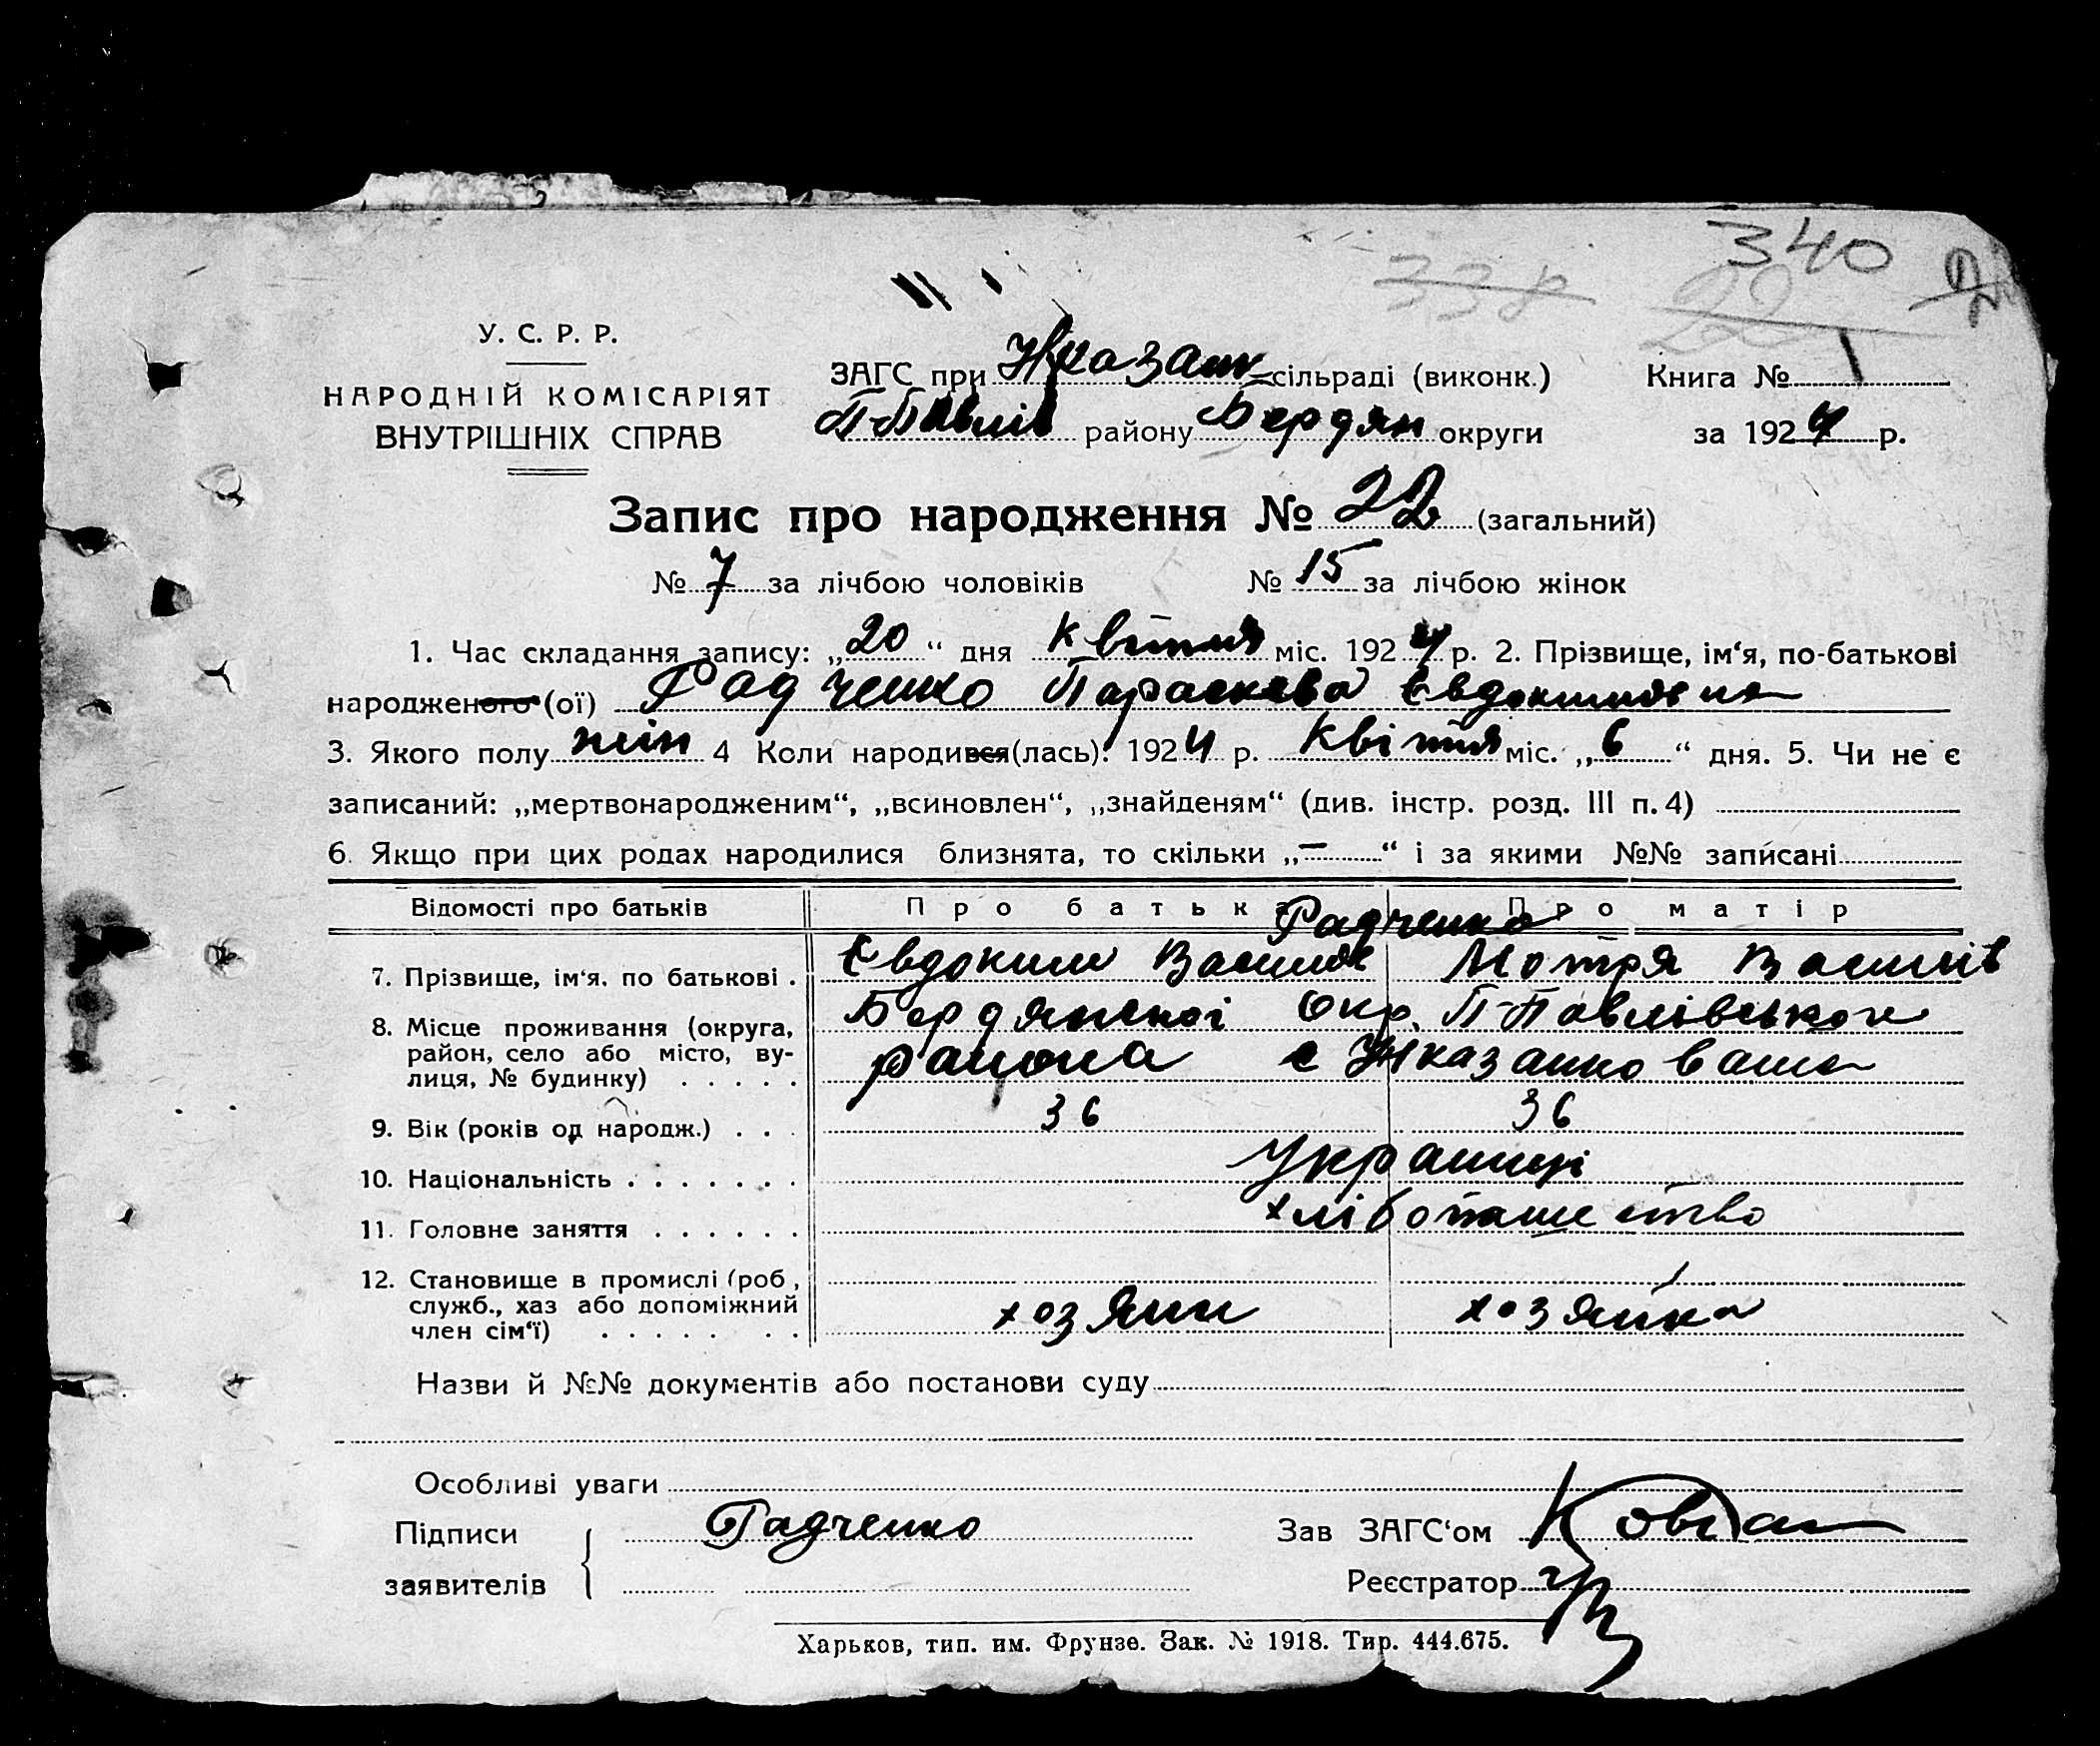 340
338
22
У. С. Р. Р.
НАРОДНІЙ КОМІСАРІЯТ
ВНУТРІШНІХ СПРАВ
ЗАГС при Нказан сільраді (виконк.)
П-Павлів району Бердян округи
Книга № 1
за 1924 р.
Запис про народження № 22 (загальний)
№ 7 за лічбою чоловіків № 15 за лічбою жінок
1. Час складання запису: „20“ дня квітня міс. 1924 р. 2. Прізвище, ім‘я, по-батькові
народженого (ої) Радченко Параскева Евдокимовна
3. Якого полу жін 4 Коли народився(лась): 1924 р. квітня міс. „6“ дня. 5. Чи не є
записаний: „мертвонародженим“, „всиновлен“, „знайденям“ (див. інстр. розд. III п. 4)
6. Якщо при цих родах народилися близнята, то скільки „—“ і за якими №№ записані
Відомості про батьків Про батька Про матір
Радченко
7. Прізвище, ім‘я, по батькові . Евдоким Васильов Мотря Василів
8. Місце проживання (округа, район, село або місто, вулиця, № будинку) . . . . . Бердянської Окр. П-Павлівського
района с
9. Вік (років од народж.) . . . 36 36
10. Національність . . . . . . . Українці
11. Головне заняття . . . . . . хліборобство
12. Становище в промислі (роб, служб., хаз або допоміжний член сім‘ї) . . . . . . . хозяин хозяйка
Назви й №№ документів або постанови суду
Особливі уваги
Підписи Радченко Зав ЗАГС‘ом
заявителів Реєстратор
Харьков, тип. им. Фрунзе. Зак. № 1918. Тир. 444.675.